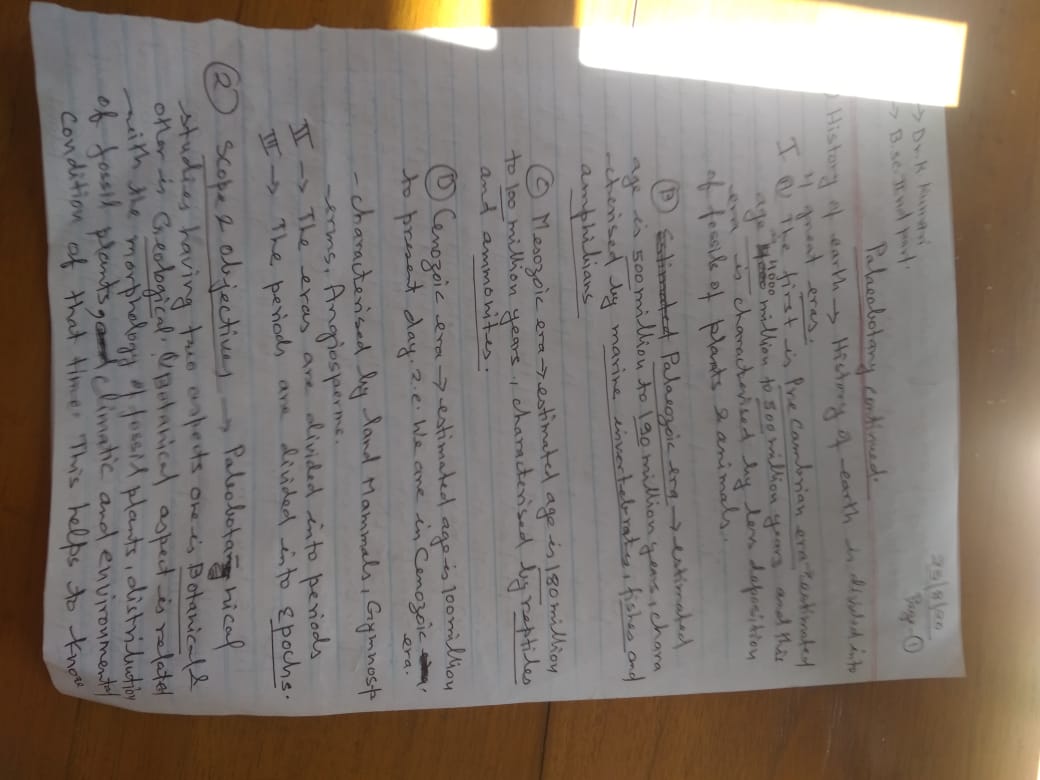 25/8/20
Page-①
→ Dr. K Kumari
→ B.Sc. II nd part.
Paleobotany continued.
History of earth → History of earth is divided into
4 great eras.
I Ⓐ The first is Pre Cambrian era - estimated
age 4000 million to 500 million years and this
era is characterised by less deposition
of fossils of plants & animals.
Ⓑ Estimated Palaeozoic era → estimated
age is 500 million to 190 million years, chara
-cterised by marine invertebrates, fishes and
amphibians
Ⓒ Mesozoic era → estimated age is 180 million
to 100 million years, characterised by reptiles
and ammonites.
Ⓓ Cenozoic era → estimated age is 100 million
to present day. i.e. We are in Cenozoic
era.
- characterised by land Mammals, Gymnosp
-erms, Angiosperms.
II → The eras are divided into periods
III → The periods are divided into Epochs.
② Scope & objectives → Paleobota nical
studies having two aspects one is Botanical &
other is Geological. Botanical aspect is related
- with the morphology of fossil plants, distribution
of fossil plants, climatic and environmental
condition of that time. This helps to know